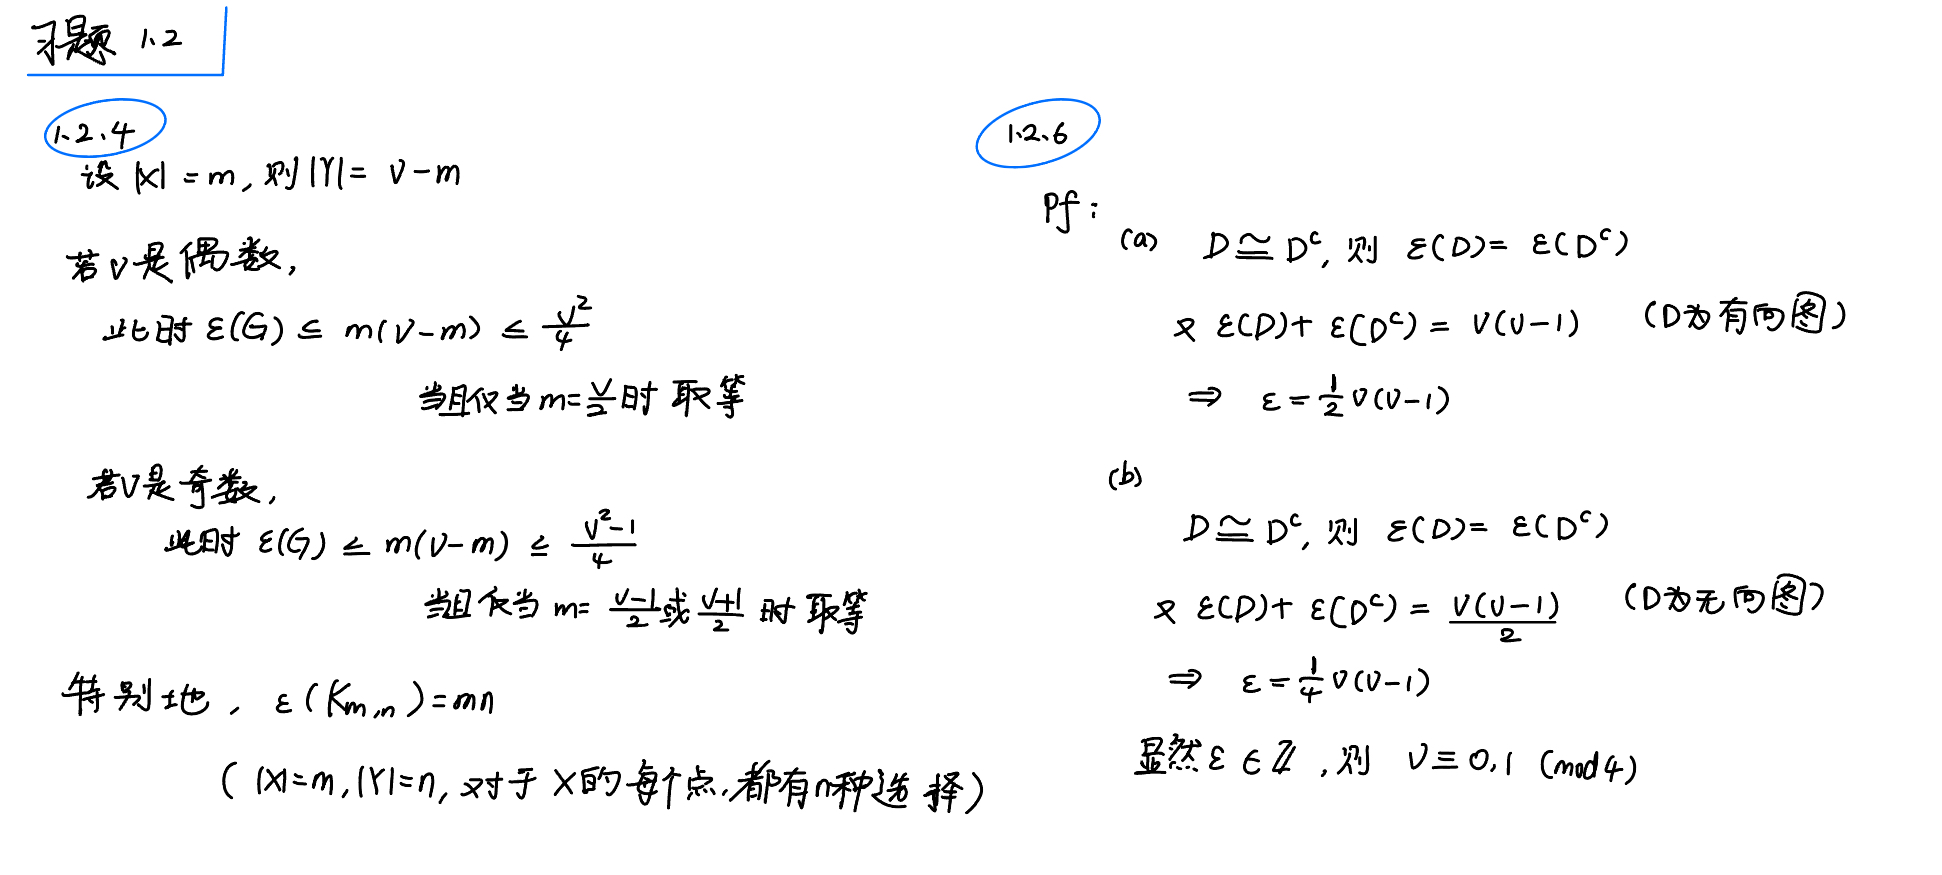 习题 1.2
1.2.4
设 |X| = m, 则 |Y| = ν - m
若 ν 是偶数,
此时 ε(G) ≤ m(ν-m) ≤ ν²/4
当且仅当 m = ν/2 时 取等
若 ν 是奇数,
此时 ε(G) ≤ m(ν-m) ≤ (ν²-1)/4
当且仅当 m = (ν-1)/2 或 (ν+1)/2 时 取等
特别地, ε(K_{m,n}) = mn
( |X|=m, |Y|=n, 对于 X 的每个点, 都有 n 种选择 )
1.2.6
Pf:
(a) D ≅ D^c, 则 ε(D) = ε(D^c)
又 ε(D) + ε(D^c) = ν(ν-1) (D为有向图)
⇒ ε = 1/2 ν(ν-1)
(b)
D ≅ D^c, 则 ε(D) = ε(D^c)
又 ε(D) + ε(D^c) = ν(ν-1)/2 (D为无向图)
⇒ ε = 1/4 ν(ν-1)
显然 ε ∈ ℤ, 则 ν ≡ 0,1 (mod 4)